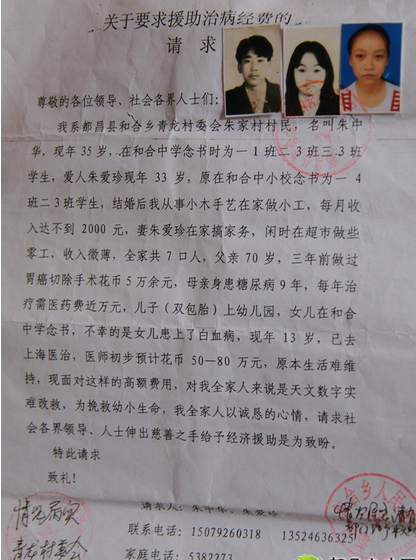 关于要求援助治病经费的
请 求
尊敬的各位领导、社会各界人士们：
我系都昌县和合乡青龙村委会朱家村村民，名叫朱中
华，现年 35 岁，在和合中学念书时为一 1 班二 3 班三 3 班
学生，爱人朱爱珍现年 33 岁，原在和合中小校念书为一 4
班二 3 班学生，结婚后我从事小木手艺在家做小工，每月收
入达不到 2000 元，妻朱爱珍在家搞家务，闲时在超市做些
零工，收入微薄，全家共 7 口人，父亲 70 岁，三年前做过
胃癌切除手术花币 5 万余元，母亲身患糖尿病 9 年，每年治
疗需医药费近万元，儿子（双包胎）上幼儿园，女儿在和合
中学念书，不幸的是女儿患上了白血病，现年 13 岁，已去
上海医治，医师初步预计花币 50—80 万元，原本生活难维
持，现面对这样的高额费用，对我全家人来说是天文数字实
难改救，为挽救幼小生命，我全家人以诚恳的心情，请求社
会各界领导、人士伸出慈善之手给予经济援助是为致盼。
特此请求
致礼！
请求人：朱中华、朱爱珍
联系电话：15079260318 13524636325
家庭电话：5382273
情况属实
青龙村委会